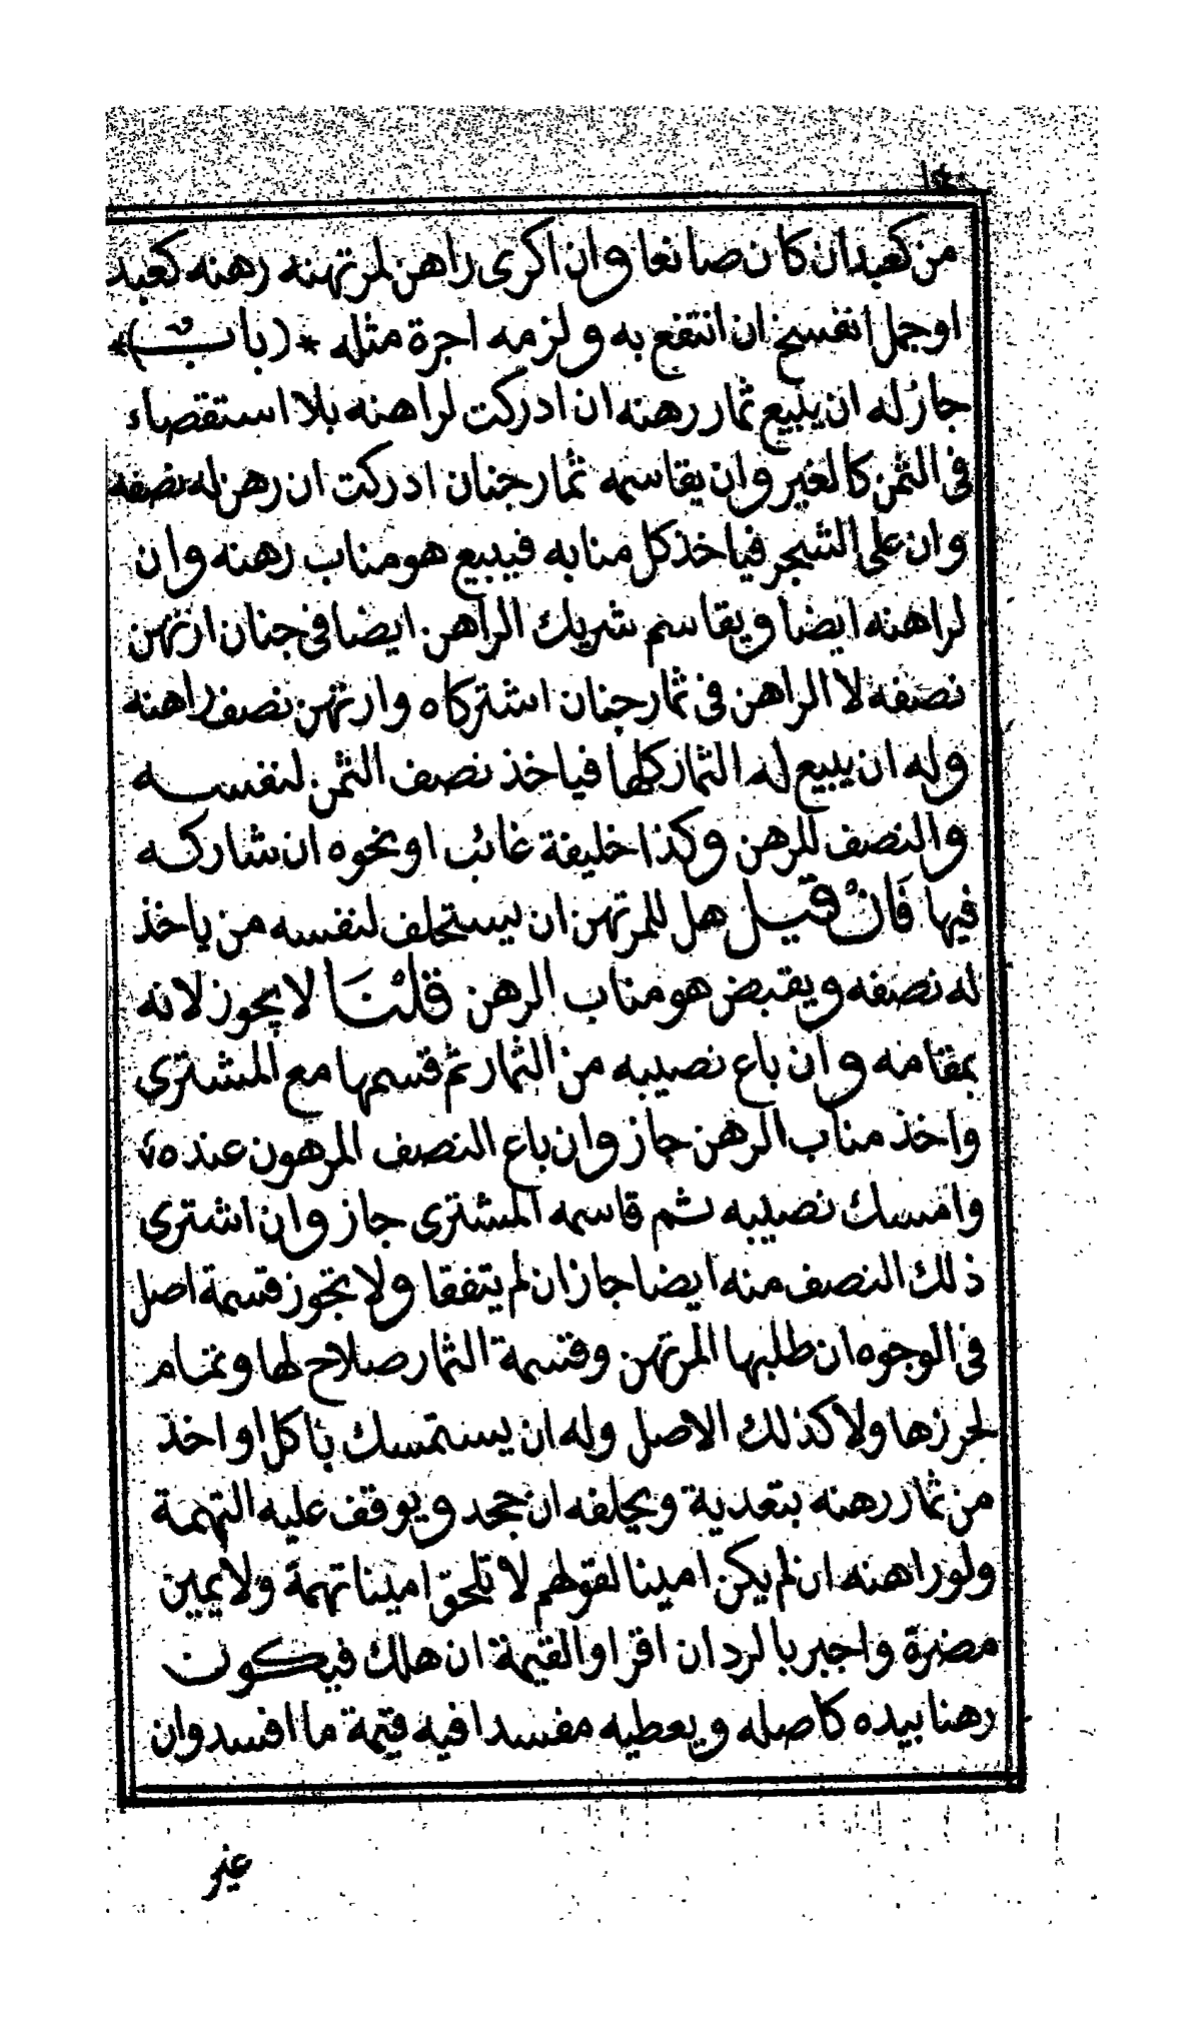 من كعبدان كان صانعا وان اكرى راهن لمرتهنه رهنه كعبد
اوجمل انفسخ ان انتفع به ولزمه اجرة مثله *(باب)*
جازله ان يبيع ثمار رهنه ان ادركت لراهنه بلا استقصاء
فى الثمن كالغير وان يقاسمه ثمار جنان ادركت ان رهن له نصفه
وان على الشجر فياخذ كل منابه فيبيع هو مناب رهنه وان
لراهنه ايضا ويقاسم شريك الراهن ايضا فى جنان ارتهن
نصفه لا الراهن فى ثمار جنان اشتركاه وارتهن نصف راهنه
وله ان يبيع له الثمار كلها فياخذ نصف الثمن لنفسه
والنصف للرهن وكذا خليفة غائب او نحوه ان شاركه
فيها فَانْ قيل هل للمرتهن ان يستخلف لنفسه من ياخذ
له نصفه ويقبض هو مناب الرهن قلْنَا لا يجوز لانه
بمقامه وان باع نصيبه من الثمار ثم قسمها مع المشترى
واخذ مناب الرهن جاز وان باع النصف المرهون عنده
وامسك نصيبه ثم قاسمه المشترى جاز وان اشترى
ذلك النصف منه ايضا جاز ان لم يتفقا ولا تجوز قسمة اصل
فى الوجوه ان طلبها المرتهن وقسمة الثمار صلاح لها وتمام
لحرزها ولا كذلك الاصل وله ان يستمسك باكل او اخذ
من ثمار رهنه بتعدية ويحلفه ان جحد ويوقف عليه التهمة
ولو راهنه ان لم يكن امينا لقولهم لا تلحق امينا تهمة ولا يمين
مضرة واجبر بالرد ان اقر او القيمة ان هلك فيكون
رهنا بيده كاصله ويعطيه مفسدا فيه قيمة ما افسد وان
غير